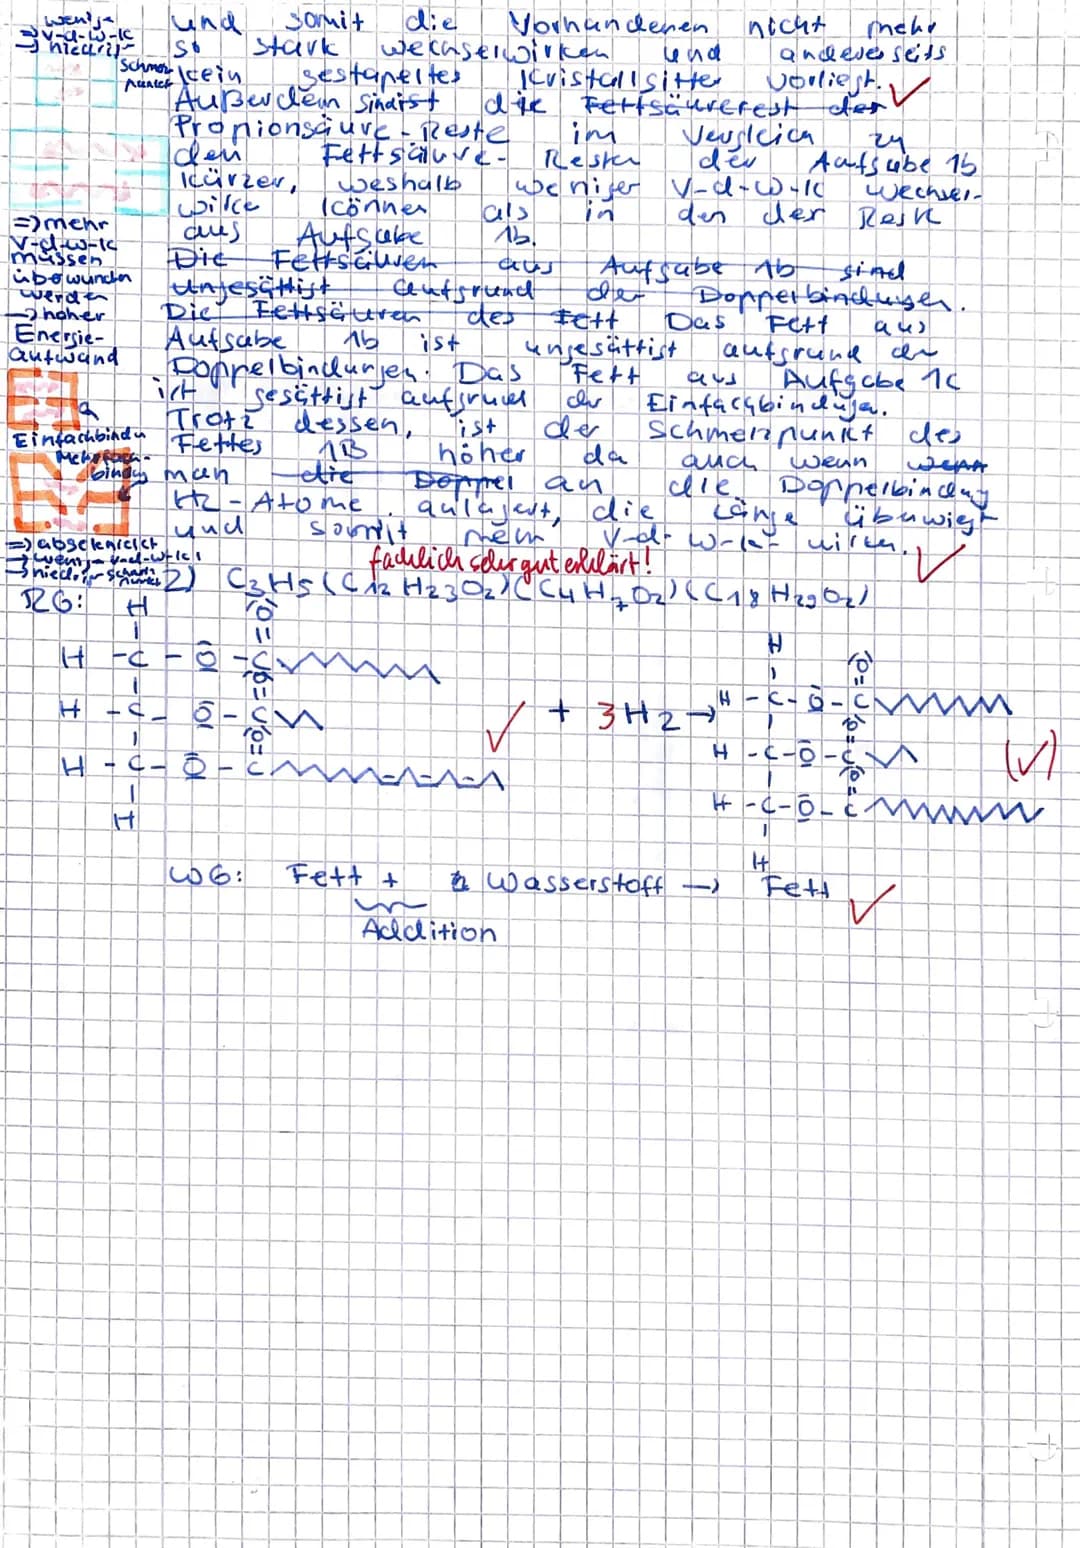 wenig-
=> v-d-w-k
=> niedrig-
Schmelz
punkt
=> mehr
v-d-w-k
müssen
überwunden
werden
-> hoher
Energie-
aufwand
Einfachbindu
Mehrfach-
bindg
=> abgeknickt
=> wenig- v-d-w-k
=> niedriger Schmelz
punkt
und somit die Vorhandenen nicht mehr
so stark wechselwirken und andererseits
kein gestapeltes Kristallgitter vorliegt.
Außerdem sind ist die Fettsäurerest der
Propionsäure-Reste im Vergleich zu
den Fettsäure-Resten der Aufgabe 1b
kürzer, weshalb weniger V-d-W-K wechsel-
wirke können als in den der Reste
aus Aufgabe 1b.
Die Fettsäuren aus Aufgabe 1b sind
ungesättigt aufgrund der Doppelbindungen.
Die Fettsäuren des Fett Das Fett aus
Aufgabe 1b ist ungesättigt aufgrund der
Doppelbindungen. Das Fett aus Aufgabe 1c
ist gesättigt aufgrund der Einfachbindugen.
Trotz dessen, ist der Schmelzpunkt des
Fettes 1B höher da auch wenn wenn
man die Doppel an die Doppelbindung
H2-Atome anlagert, die Länge überwiegt
und somit mehr V-d-W-K wirken.
fachlich sehr gut erklärt!
2) C3H5(C12H23O2)(C4H7O2)(C18H29O2)
RG:
H
H - C - O - C
O
H - C - O - C
O
H - C - O - C
O
H
+ 3H2 →
H
H - C - O - C
O
H - C - O - C
O
H - C - O - C
O
H
WG: Fett + Wasserstoff → Fett
Addition